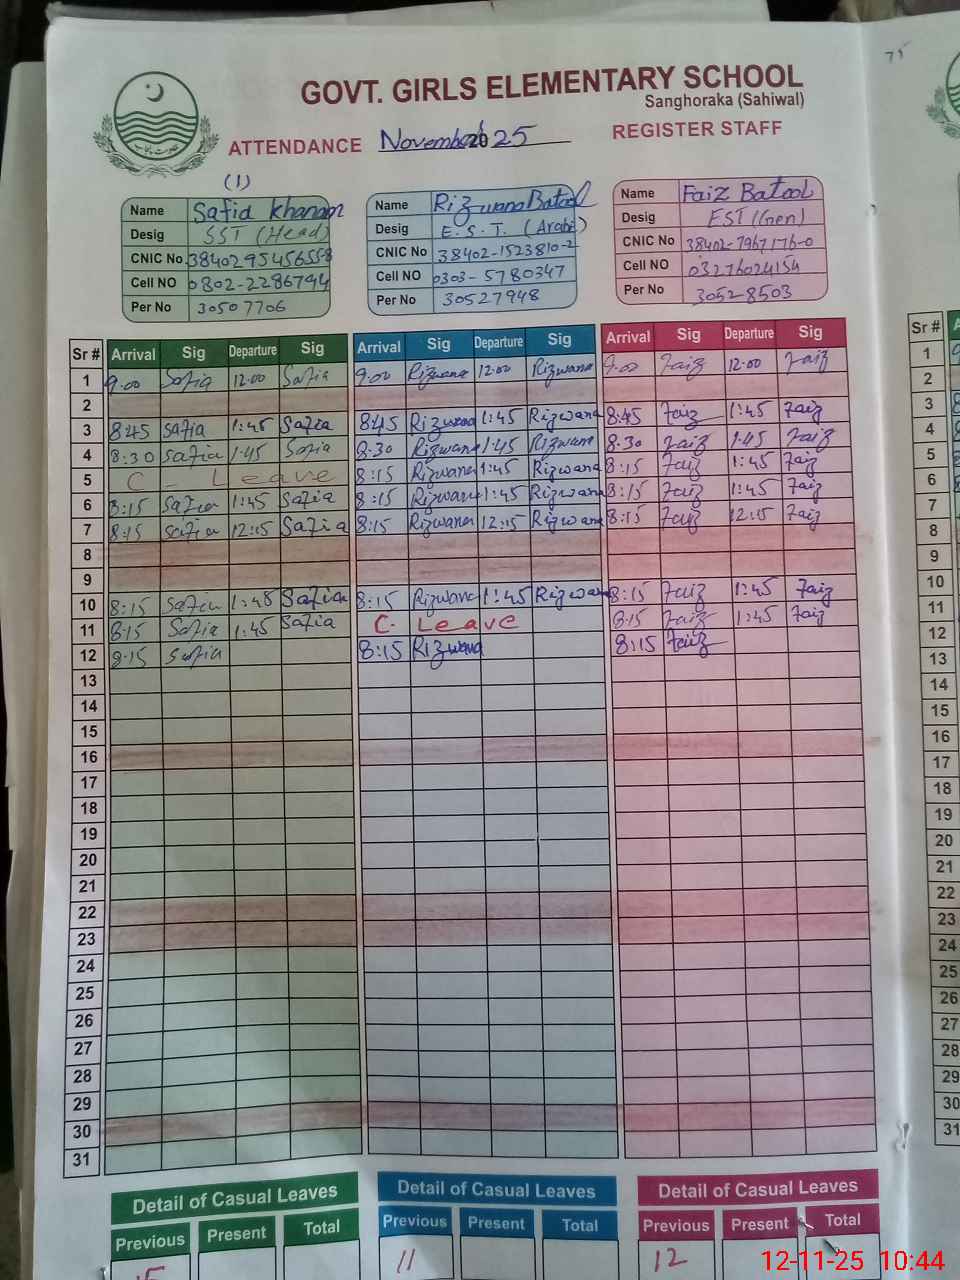 75
GOVT. GIRLS ELEMENTARY SCHOOL
Sanghoraka (Sahiwal)
ATTENDANCE November 2025 REGISTER STAFF
(1)
Name Safia Khanam
Desig SST (Head)
CNIC No
Cell NO 0302-2286794
Per No 30507706
Name Rizwana Batool
Desig E.S.T. (Arabic)
CNIC No 38402-1523810-2
Cell NO 0303-5780347
Per No 30527948
Name Faiz Batool
Desig EST (Gen)
CNIC No 38402-7967176-0
Cell NO 03276024154
Per No 3052-8503
Sr # Arrival Sig Departure Sig Arrival Sig Departure Sig Arrival Sig Departure Sig Sr #
1 9.00 Safia 12.00 Safia 9.00 Rizwana 12.00 Rizwana 9.00 Faiz 12.00 Faiz 1
2 2
3 8:45 Safia 1:45 Safia 8:45 Rizwana 1:45 Rizwana 8:45 Faiz 1:45 Faiz 3
4 8:30 Safia 1:45 Safia 8:30 Rizwana 1:45 Rizwana 8:30 Faiz 1:45 Faiz 4
5 C- Leave 8:15 Rizwana 1:45 Rizwana 8:15 Faiz 1:45 Faiz 5
6 8:15 Safia 1:45 Safia 8:15 Rizwana 1:45 Rizwana 8:15 Faiz 1:45 Faiz 6
7 8:15 Safia 12:15 Safia 8:15 Rizwana 12:15 Rizwana 8:15 Faiz 12:15 Faiz 7
8 8
9 9
10 8:15 Safia 1:45 Safia 8:15 Rizwana 1:45 Rizwana 8:15 Faiz 1:45 Faiz 10
11 8:15 Safia 1:45 Safia C. Leave 8:15 Faiz 1:45 Faiz 11
12 8:15 Safia 8:15 Rizwana 8:15 Faiz 12
13 13
14 14
15 15
16 16
17 17
18 18
19 19
20 20
21 21
22 22
23 23
24 24
25 25
26 26
27 27
28 28
29 29
30 30
31 31
Detail of Casual Leaves Detail of Casual Leaves Detail of Casual Leaves
Previous Present Total Previous Present Total Previous Present Total
11 12
12-11-25 10:44